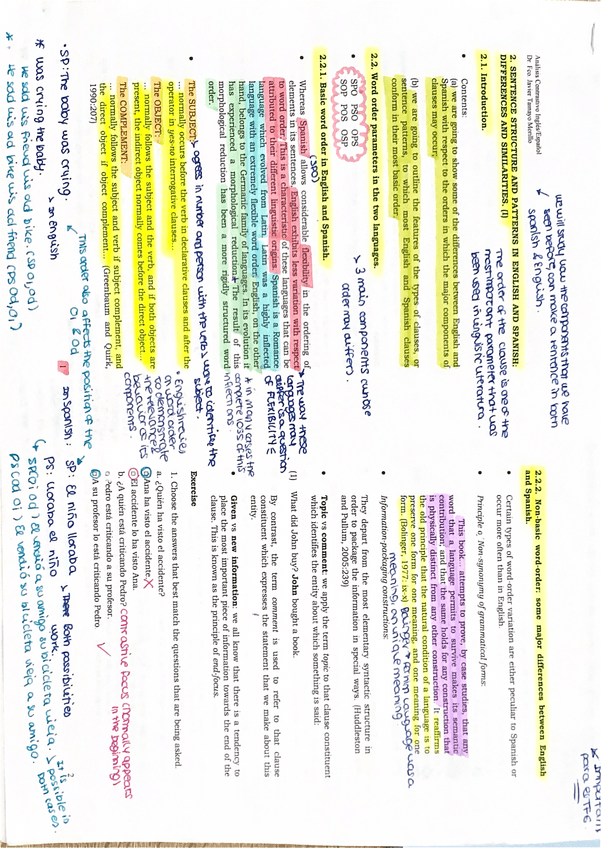 Análisis Contrastivo Inglés/Español
Dr Fco Javier Tamayo Morillo
2. SENTENCE STRUCTURE AND PATTERNS IN ENGLISH AND SPANISH:
DIFFERENCES AND SIMILARITIES. (I)
we will study how the components that we have
seen before, can make a sentence in both
Spanish & English.
2.1. Introduction.
The order of the clause is one of the
most important parameter that was
been used in linguistic literature.
• Contents:
(a) we are going to show some of the differences between English and
Spanish with respect to the orders in which the major components of
clauses may occur.
(b) we are going to outline the features of the types of clauses, or
sentence patterns, to which most English and Spanish clauses
conform in their most basic order.
2.2. Word order parameters in the two languages.
3 main components whose
order may differ.
SPO PSO OPS
SOP POS OSP
2.2.1. Basic word order in English and Spanish.
(SPO)
• Whereas Spanish allows considerable flexibility in the ordering of
elements in its sentences, English exhibits less variation with respect
to word order. This is a characteristic of these languages that can be
attributed to their different linguistic origins. Spanish is a Romance
language which evolved from Latin. Latin was a highly inflected
language with an extremely flexible word order; English, on the other
hand, belongs to the Germanic family of languages. In its evolution it
has experienced a morphological reduction. The result of this
morphological reduction has been a more rigidly structured word
order.
The way these
languages may
differ is a question
of FLEXIBILITY
* in many cases the
complete loss of this
inflections
• The SUBJECT: agrees in number and person with the verb. Ways to identify the
subject.
... normally occurs before the verb in declarative clauses and after the
operator in yes-no interrogative clauses...
The OBJECT:
... normally follows the subject and the verb, and if both objects are
present, the indirect object normally comes before the direct object...
The COMPLEMENT:
... normally follows the subject and verb if subject complement, and
the direct object if object complement... (Greenbaum and Quirk,
1990:207)
• English uses
word order
to demonstrate
the relevance &
behavior of its
components.
This order also affects the position of the
Oi & Od
• SP: The baby was crying.
* Was crying the baby.
in English
He sold his friend his old bike. (SP Oi Od)
* He sold his old bike his old friend (PS Od Oi)
2.2.2. Non-basic word-order: some major differences between English
and Spanish.
* Important
para el TFG.
• Certain types of word-order variation are either peculiar to Spanish or
occur more often than in English.
• Principle of Non-synonymy of grammatical forms:
This book... attempts to prove, by case studies, that any
word that a language permits to survive makes its semantic
contribution; and that the same holds for any construction that
is physically distinct from any other construction. It reaffirms
the old principle that the natural condition of a language is to
preserve one form for one meaning, and one meaning for one
form. (Bolinger, 1977: ix-x)
• Information-packaging constructions:
They depart from the most elementary syntactic structure in
order to package the information in special ways. (Huddleston
and Pullum, 2005:239)
• Topic vs comment: we apply the term topic to that clause constituent
which identifies the entity about which something is said:
(1) What did John buy? John bought a book.
By contrast, the term comment is used to refer to that clause
constituent which expresses the statement that we make about this
entity.
• Given vs new information: we all know that there is a tendency to
place the most important piece of information towards the end of the
clause. This is known as the principle of end-focus.
Exercise
1. Choose the answers that best match the questions that are being asked.
a. ¿Quién ha visto el accidente?
Ana ha visto el accidente. X
El accidente lo ha visto Ana.
b. ¿A quién está criticando Pedro? contrastive focus (normally appears
in the beginning)
Pedro está criticando a su profesor.
A su profesor lo está criticando Pedro
1 in Spanish:
SP: El niño lloraba
PS: Lloraba el niño
Here both possibilities
work.
SP(Oi Od) El vendió a su amigo su bicicleta vieja.
PS(Od Oi) El vendió su bicicleta vieja a su amigo.
It is
possible in
both cases.